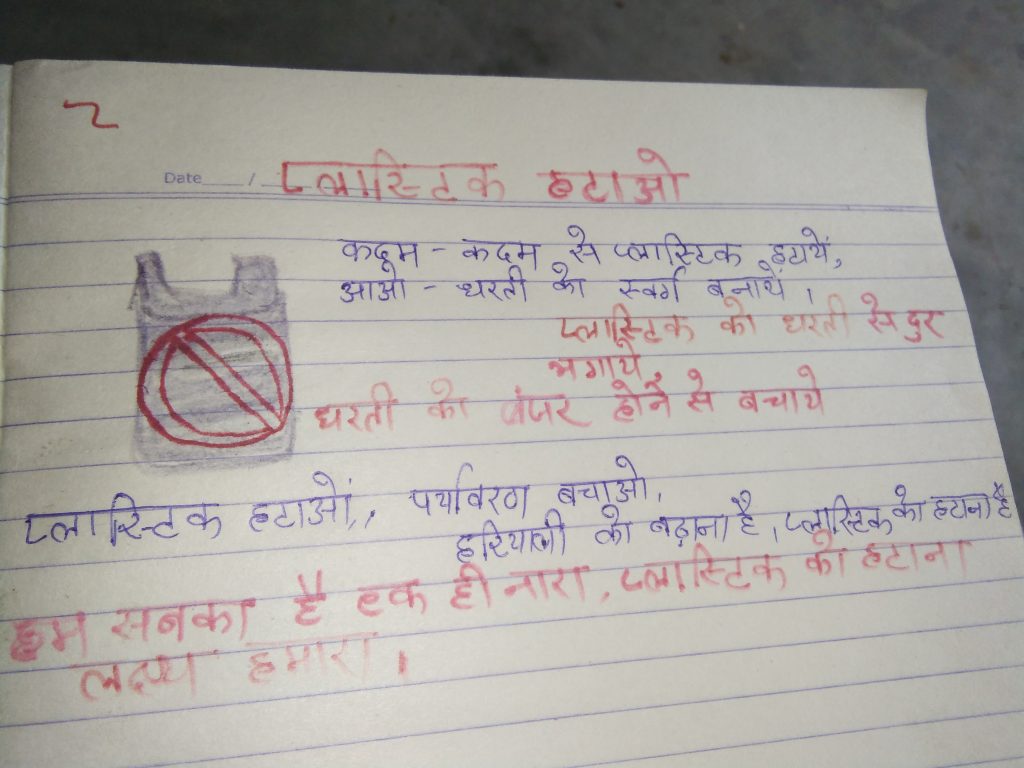 २
Date ___/
प्लास्टिक हटाओ
कदम - कदम से प्लास्टिक हटायें,
आओ - धरती को स्वर्ग बनायें ।
प्लास्टिक को धरती से दुर
भगाये
धरती को बंजर होने से बचाये
प्लास्टिक हटाओं,, पर्यावरण बचाओ,
हरियाली को बढ़ाना है, प्लास्टिक को हटाना है
हम सबका है एक ही नारा, प्लास्टिक को हटाना
लक्ष्य हमारा ।